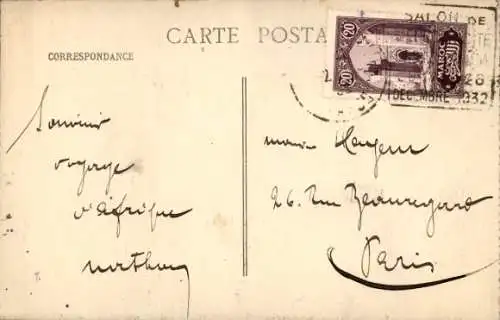 CARTE POSTA
CORRESPONDANCE
SALON DE
20 MAROC 20
28
DECEMBRE 1932
Souvenir
voyage
d'afrique
26. Rue Beauregard
Paris